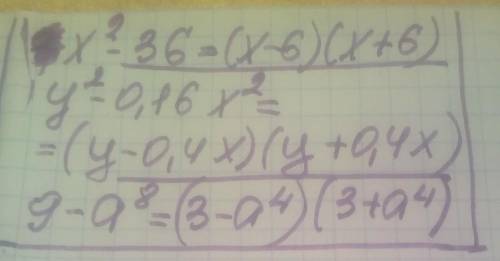 x² - 36 = (x-6)(x+6)
y² - 0,16x² =
= (y-0,4x)(y+0,4x)
9 - a⁸ = (3-a⁴)(3+a⁴)